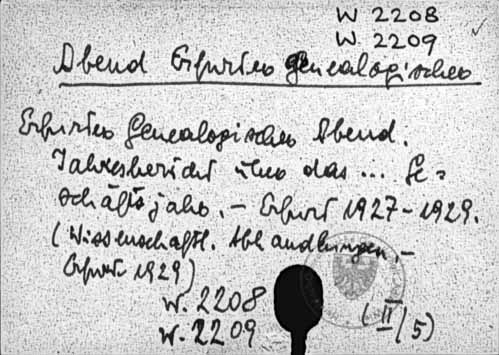 W 2208
W. 2209
Abend Erfurter genealogischer
Erfurter Genealogischer Abend.
Jahresbericht über das ... Ge=
schäftsjahr. – Erfurt 1927–1929.
(Wissenschaftl. Abhandlungen. –
Erfurt 1929)
W. 2208
W. 2209
(II/5)